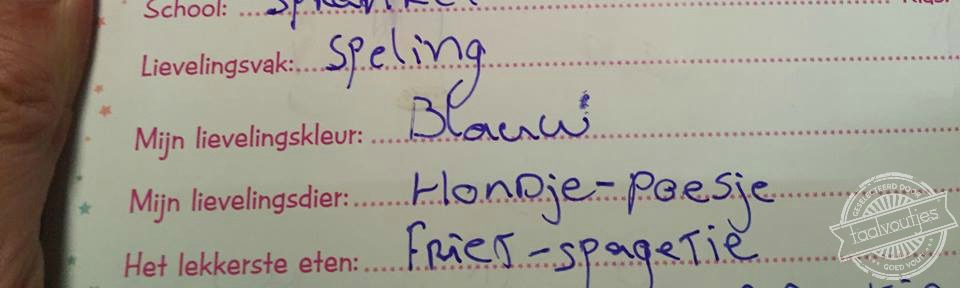 School:
Lievelingsvak: Speling
Mijn lievelingskleur: Blauw
Mijn lievelingsdier: Hondje-poesje
Het lekkerste eten: Friet-spagetie
GESELECTEERD DOOR
taalvoutjes
GOED VOUT